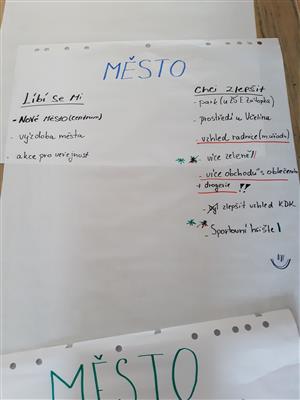 MĚSTO
Líbí se mi
- Nové Město (centrum)
- výzdoba města
- akce pro veřejnost
Chci zlepšit
- park (u ZŠ E. Zátopka)
- prostředí u Včelína
- vzhled radnice (m. úřadu)
- více zeleně!!
- více obchodů s oblečením
+ drogerie !!
- zlepšit vzhled KDK
- Sportovní hřiště!
MĚSTO